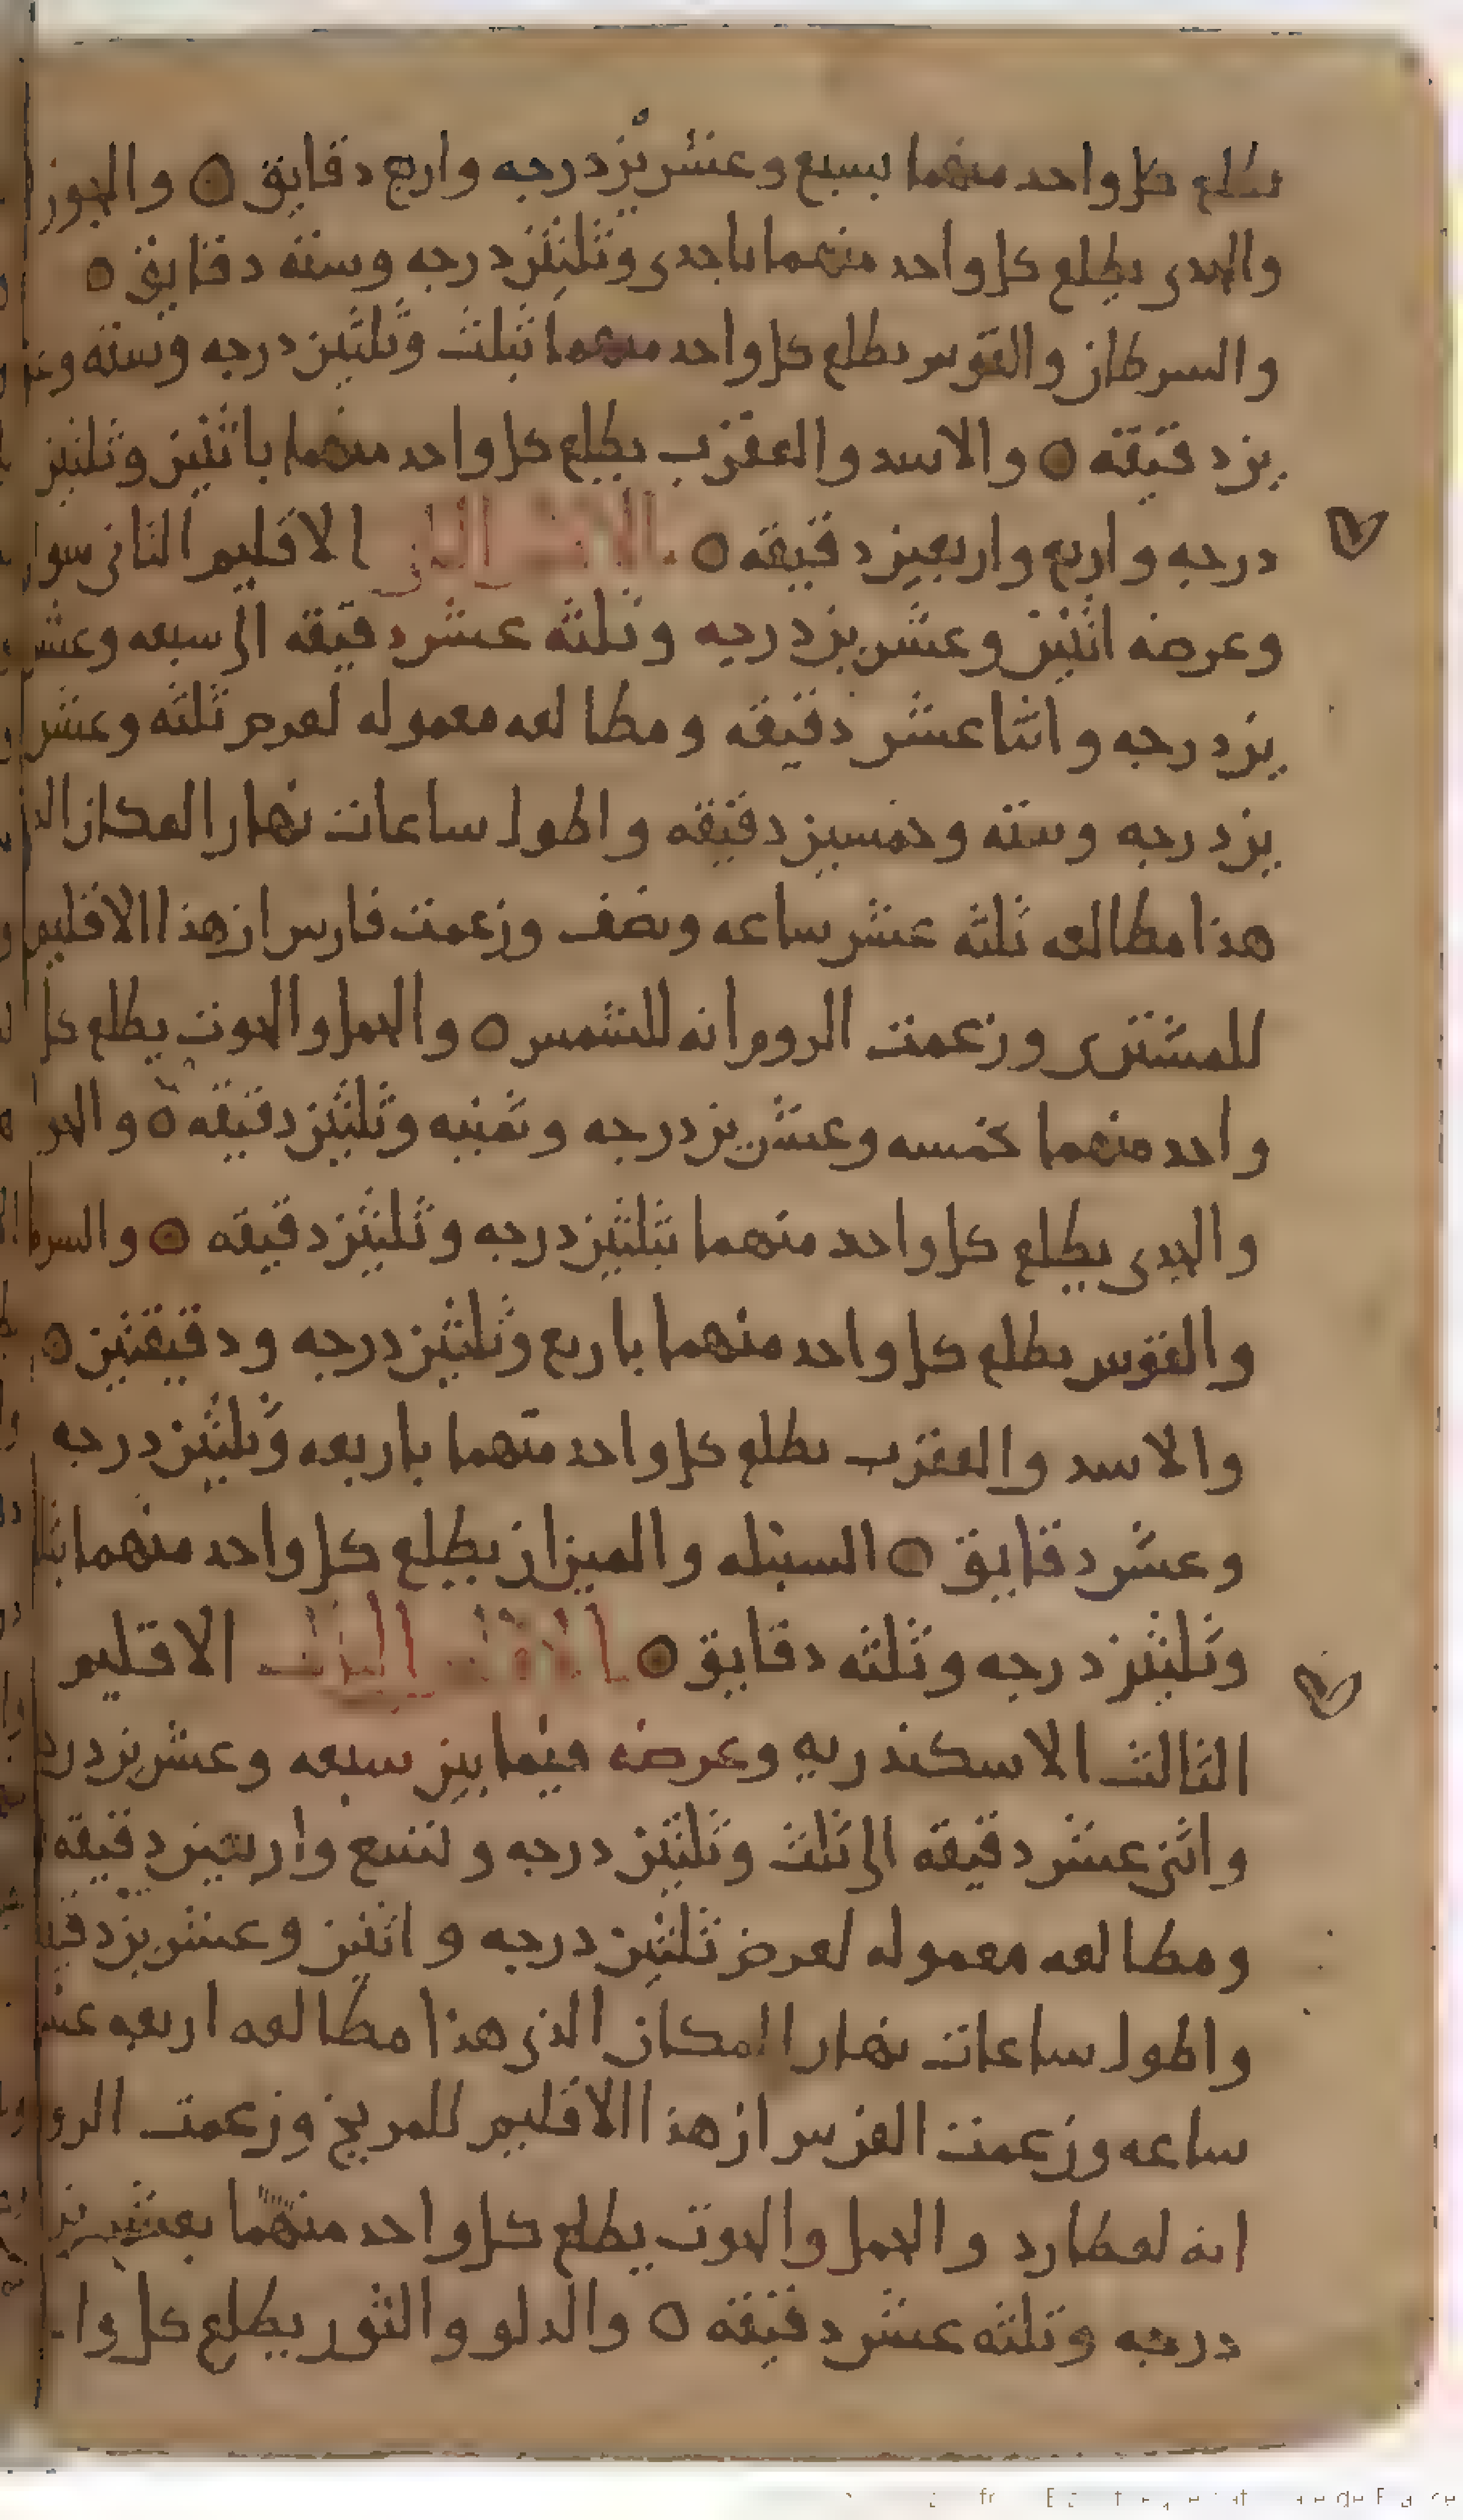 يطلع كل واحد منهما بسبع وعشرين درجه واربع دقايق ○ والجوزا
والجدى يطلع كل واحد منهما باحدى وثلثين درجه وسته دقايق ○
والسرطان والقوس يطلع كل واحد منهما بثلث وثلثين درجه وسته وعشر
ين دقيقه ○ والاسد والعقرب يطلع كل واحد منهما باثنين وثلثين
درجه واربع واربعين دقيقه ○ الاقليم الثانى سوا
وعرضه اثنين وعشرين درجه وثلثه عشر دقيقه الى سبعه وعشر
ين درجه واثنا عشر دقيقه ومطالعه معموله لعرض ثلثه وعشر
ين درجه وسته وخمسين دقيقه واطول ساعات نهار المكان الذ
هذا مطالعه ثلثه عشر ساعه ونصف وزعمت فارس ان هذا الاقليم
للمشترى وزعمت الروم انه للشمس ○ والحمل والحوت يطلع كل
واحد منهما خمسه وعشرين درجه وثمنيه وثلثين دقيقه ○
والجدى يطلع كل واحد منهما بثلثين درجه وثلثين دقيقه ○ والسرطا
والقوس يطلع كل واحد منهما باربع وثلثين درجه ودقيقتين ○
والاسد والعقرب يطلع كل واحد منهما باربعه وثلثين درجه
وعشر دقايق ○ السنبله والميزان يطلع كل واحد منهما بثلث
وثلثين درجه وثلثه دقايق ○ الاقليم الثالث الاقليم
الثالث الاسكندريه وعرضه فيما بين سبعه وعشرين درجه
واثنى عشر دقيقه الى ثلث وثلثين درجه وتسع واربعين دقيقه
ومطالعه معموله لعرض ثلثين درجه واثنين وعشرين دقيقه
واطول ساعات نهار المكان الذى هذا مطالعه اربعه عشر
ساعه وزعمت الفرس ان هذا الاقليم للمريخ وزعمت الروم
انه لعطارد والحمل والحوت يطلع كل واحد منهما بعشرين
درجه وثلثه عشر دقيقه ○ والدلو والثور يطلع كل وا